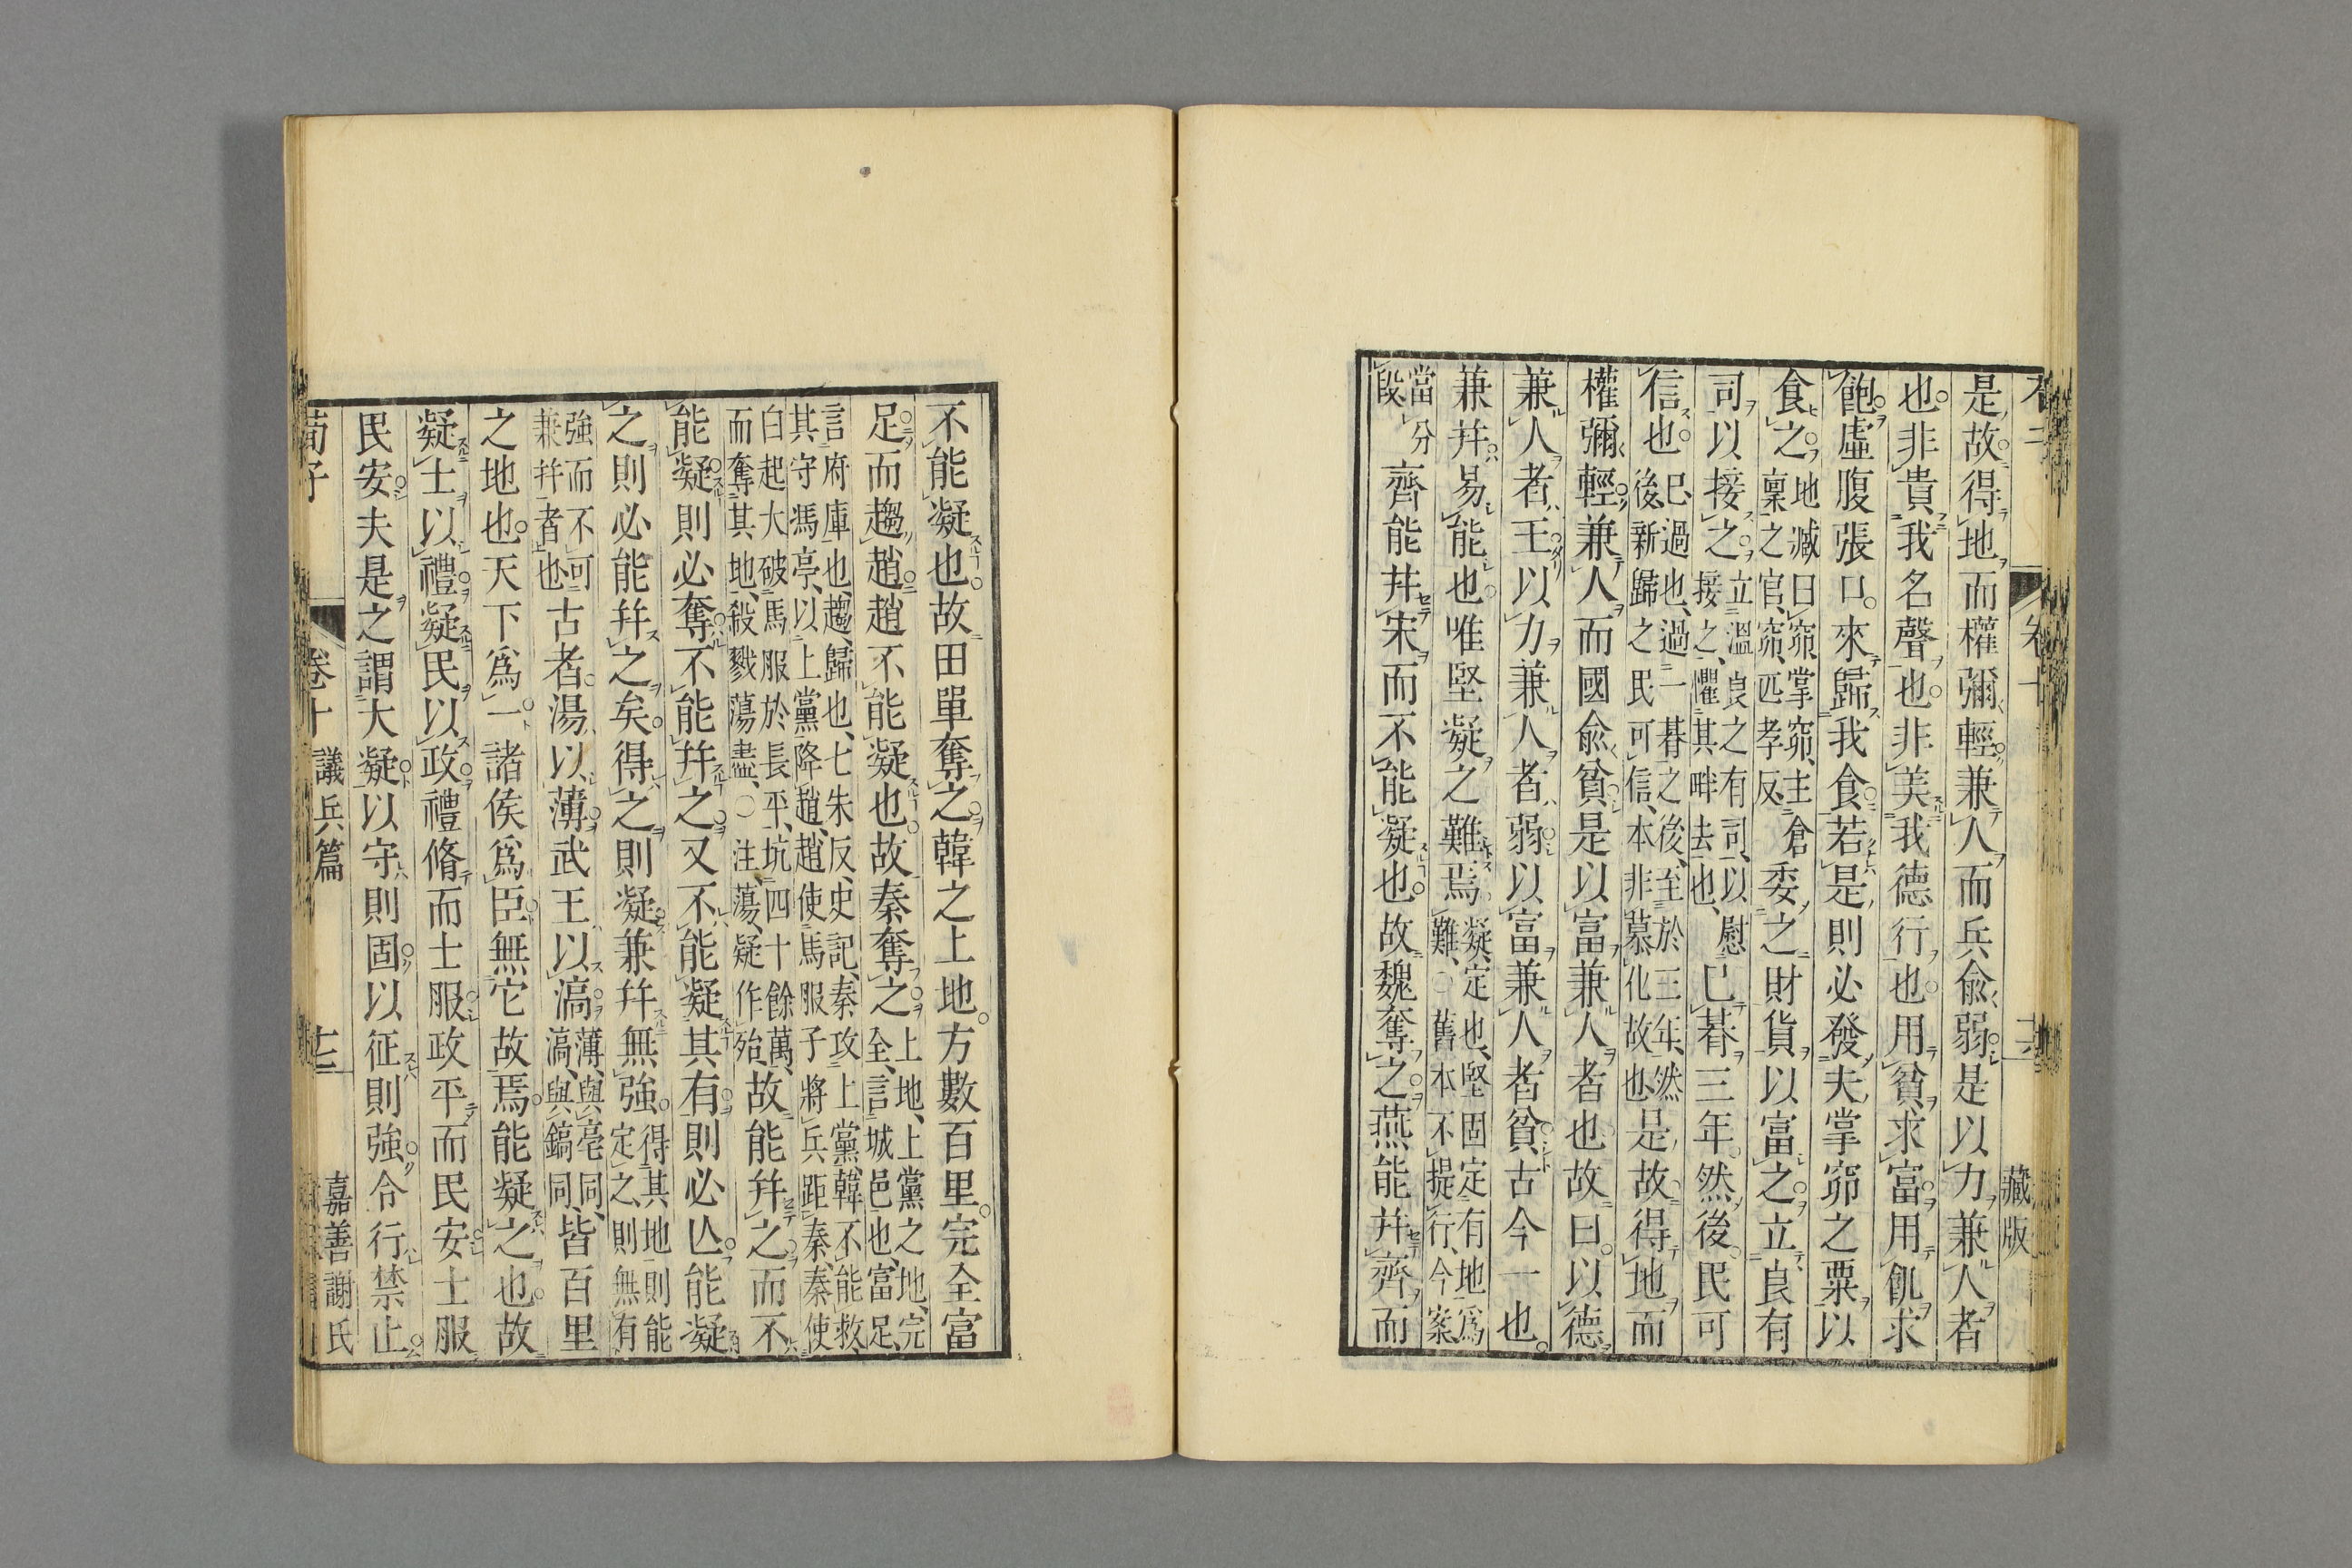 藏版
是故得地而權彌輕兼人而兵俞弱是以力兼人者
也非貴我名聲也非美我德行也用貧求富用飢求
飽虛腹張口來歸我食若是則必發夫掌窌之粟以
食之地臧曰窌掌窌主倉稟之官窌匹孝反委之財貨以富之立良有
司以接之立溫良之有司以慰接之懼其畔去也已朞三年然後民可
信也已過也過一朞之後至於三年然後新歸之民可信本非慕化故也是故得地而
權彌輕兼人而國俞貧是以富兼人者也故曰以德
兼人者王以力兼人者弱以富兼人者貧古今一也
兼幷易能也唯堅凝之難焉凝定也堅固定有地爲難〇舊本不提行今案
當分段齊能幷宋而不能凝也故魏奪之燕能幷齊而
不能凝也故田單奪之韓之上地方數百里完全富
足而趨趙趙不能凝也故秦奪之上地上黨之地完全言城邑也富足
言府庫也趨歸也七朱反史記秦攻上黨韓不能救其守馮亭以上黨降趙趙使馬服子將兵距秦秦使
白起大破馬服於長平坑四十餘萬而奪其地殺戮蕩盡〇注蕩疑作殆故能幷之而不
能凝則必奪不能幷之又不能凝其有則必亾能凝
之則必能幷之矣得之則凝兼幷無強得其地則能定之則無有
強而不可兼幷者也古者湯以薄武王以滈薄與亳同滈與鎬同皆百里
之地也天下爲一諸侯爲臣無它故焉能凝之也故
凝士以禮凝民以政禮脩而士服政平而民安士服
民安夫是之謂大凝以守則固以征則強令行禁止
荀子 卷十 議兵篇 十三 嘉善謝氏